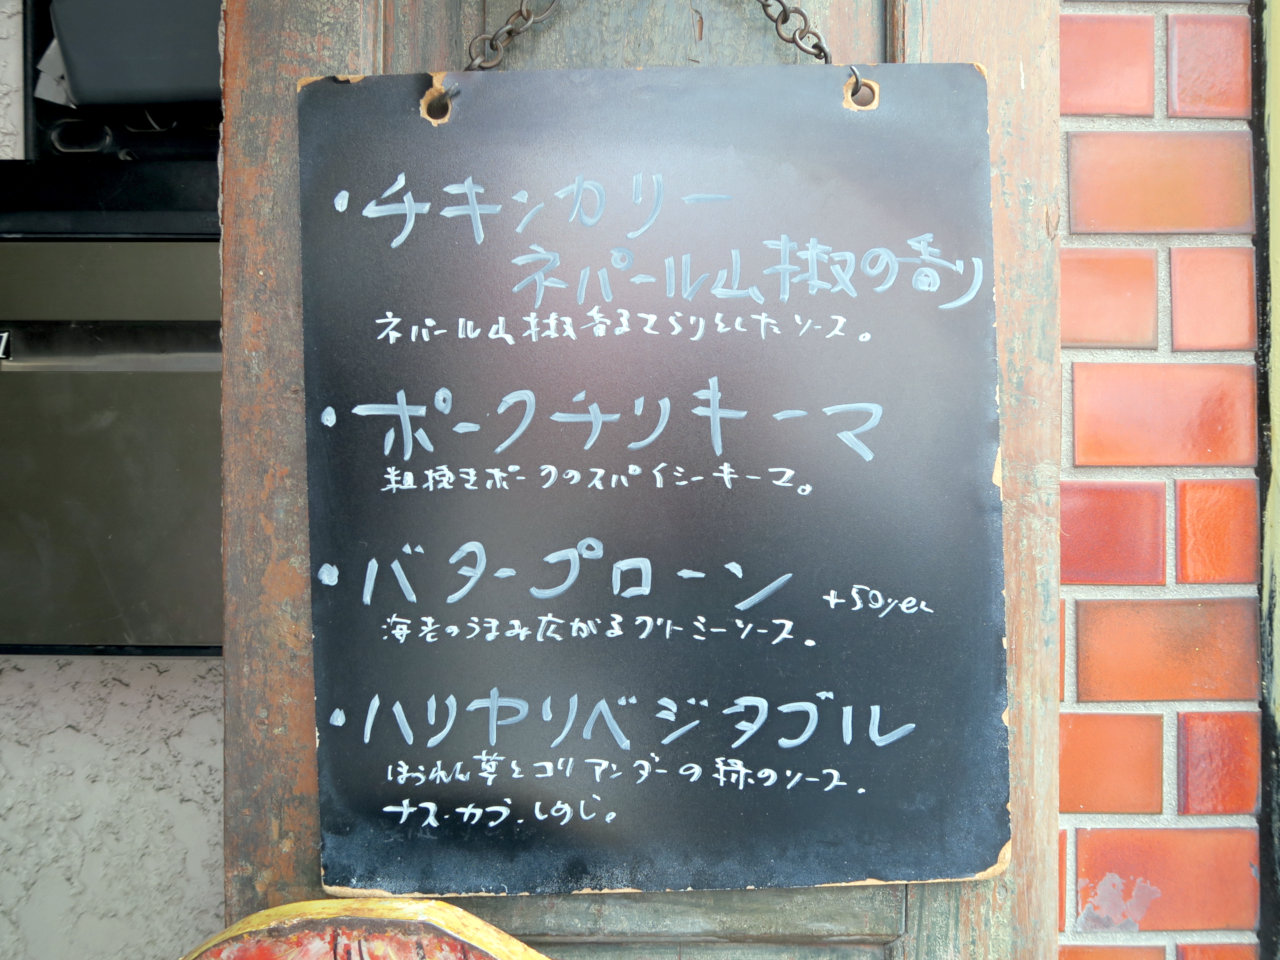 ・チキンカリー
ネパール山椒の香り
ネパール山椒香るさらりとしたソース。
・ポークチリキーマ
粗挽きポークのスパイシーキーマ。
・バタープローン +50yen
海老のうまみ広がるクリーミーソース.
・ハリヤリベジタブル
ほうれん草とコリアンダーの緑のソース.
ナス・カブ・しめじ。